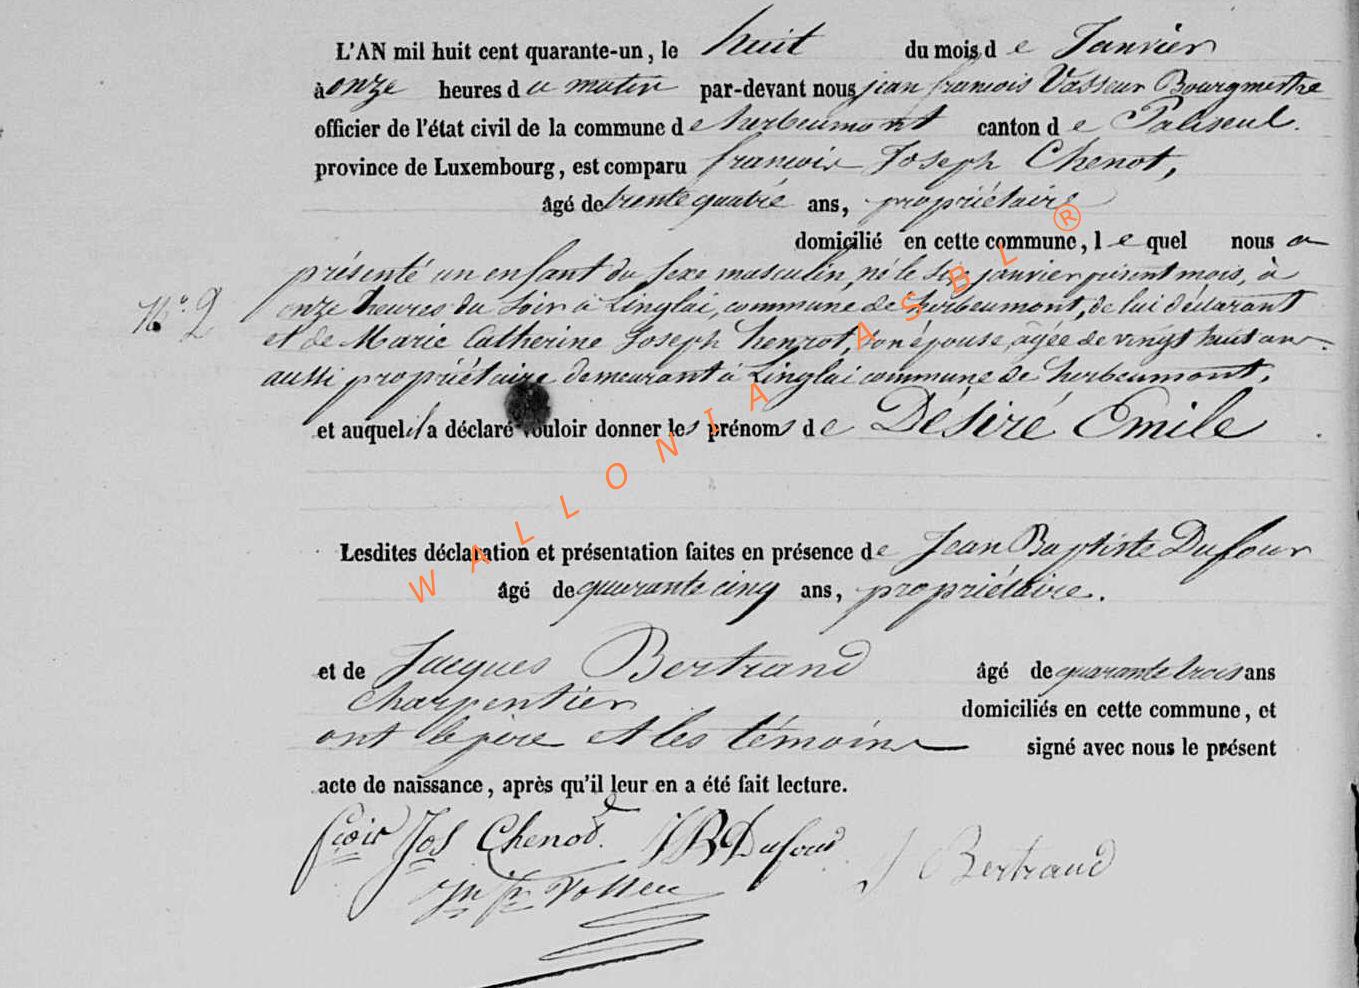 L'AN mil huit cent quarante-un, le huit du mois de Janvier
à onze heures du matin par-devant nous jean francois Vasseur Bourgmestre
officier de l'état civil de la commune de herbeumont canton de Paliseul.
province de Luxembourg, est comparu francois Joseph Chenot,
âgé de trente quatre ans, propriétaire
domicilié en cette commune, lequel nous a
présenté un enfant du sexe masculin, né le six janvier présent mois, à
N.° 2 onze heures du soir à Linglai, commune de herbeumont, de lui déclarant
et de Marie Catherine Joseph henrot, son épouse, âgée de vingt huit ans
aussi propriétaire demeurant à Linglai commune de herbeumont,
et auquel il a déclaré vouloir donner les prénoms de Désiré Emile
Lesdites déclaration et présentation faites en présence de Jean Baptiste Dufour
âgé de quarante cinq ans, propriétaire.
et de Jacques Bertrand âgé de quarante trois ans
charpentier domiciliés en cette commune, et
ont le père et les témoins signé avec nous le présent
acte de naissance, après qu'il leur en a été fait lecture.
fçois Jos Chenot. JB Dufour J Bertrand
WALLONIA ASBL ®